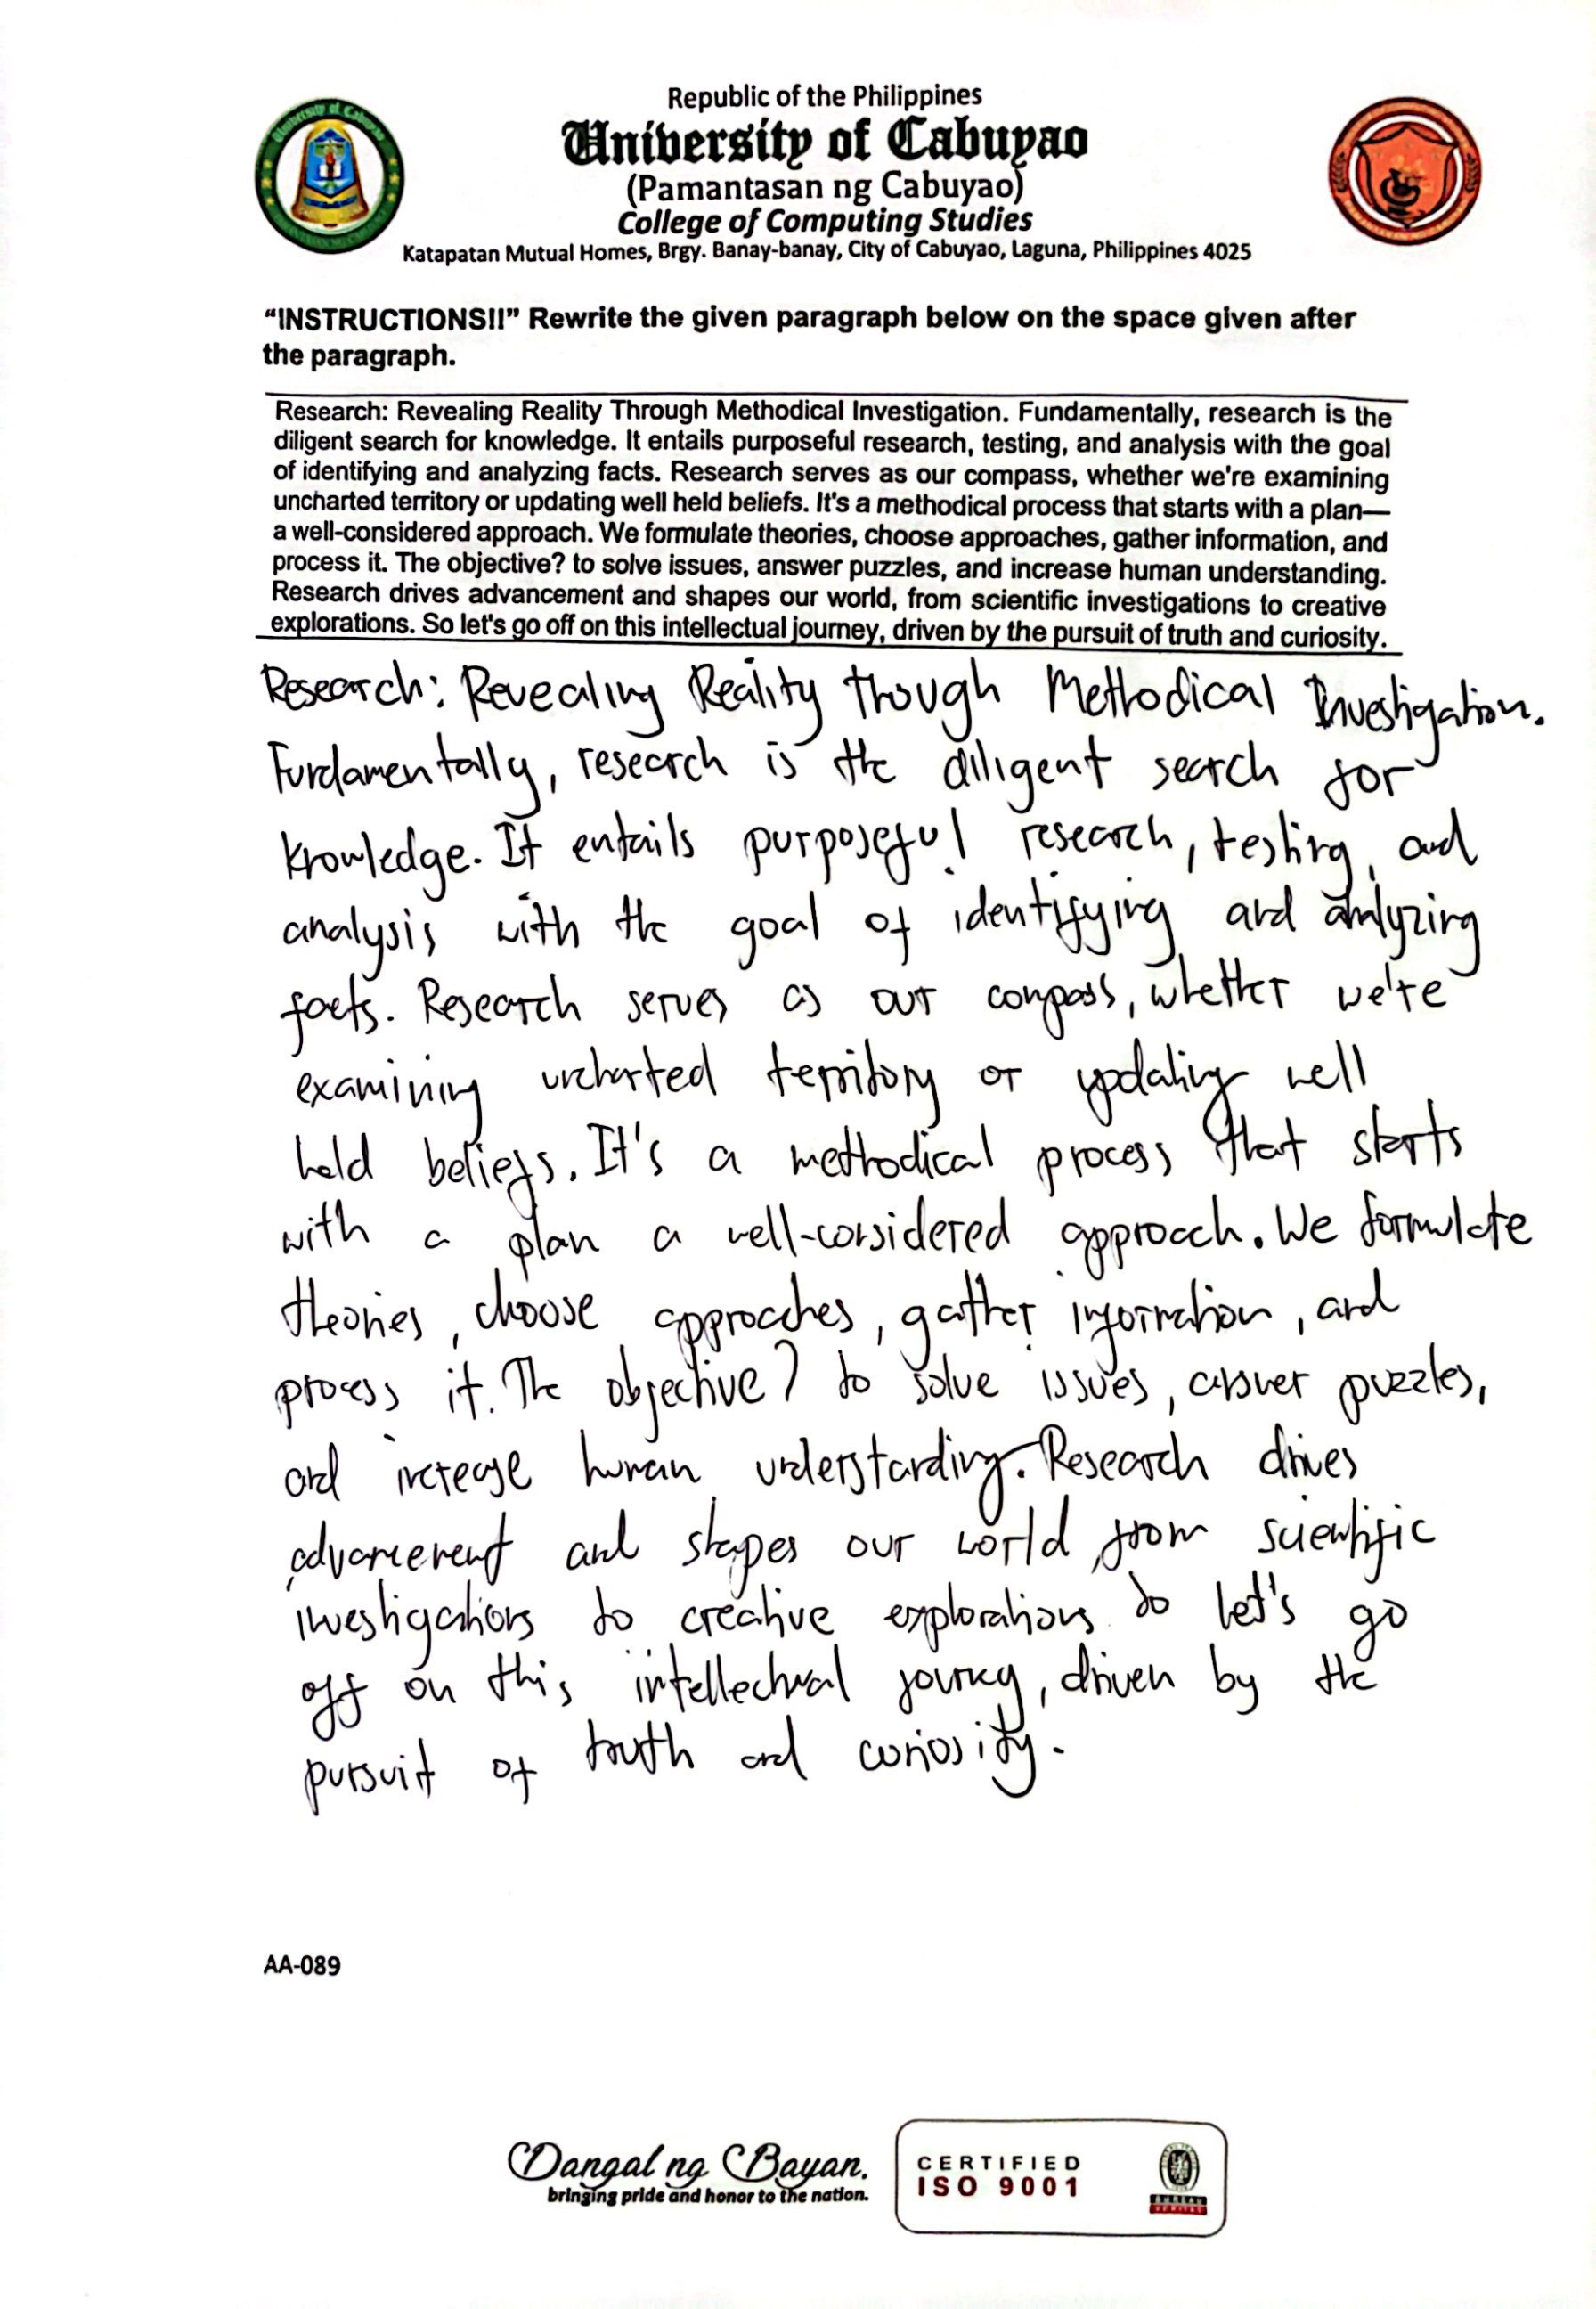 Republic of the Philippines
University of Cabuyao
(Pamantasan ng Cabuyao)
College of Computing Studies
Katapatan Mutual Homes, Brgy. Banay-banay, City of Cabuyao, Laguna, Philippines 4025
“INSTRUCTIONS!!” Rewrite the given paragraph below on the space given after
the paragraph.
Research: Revealing Reality Through Methodical Investigation. Fundamentally, research is the
diligent search for knowledge. It entails purposeful research, testing, and analysis with the goal
of identifying and analyzing facts. Research serves as our compass, whether we're examining
uncharted territory or updating well held beliefs. It's a methodical process that starts with a plan—
a well-considered approach. We formulate theories, choose approaches, gather information, and
process it. The objective? to solve issues, answer puzzles, and increase human understanding.
Research drives advancement and shapes our world, from scientific investigations to creative
explorations. So let's go off on this intellectual journey, driven by the pursuit of truth and curiosity.
Research: Revealing Reality Though Methodical Investigation.
Fundamentally, research is the diligent search for
knowledge. It entails purposeful research, testing, and
analysis with the goal of identifying and analyzing
facts. Research serves as our compass, whether we're
examining uncharted territory or updating well
held beliefs. It's a methodical process that starts
with a plan a well-considered approach. We formulate
theories, choose approaches, gather information, and
process it. The objective? to solve issues, answer puzzles,
and increase human understanding. Research drives
advancement and shapes our world, from scientific
investigations to creative explorations. So let's go
off on this intellectual journey, driven by the
pursuit of truth and curiosity.
AA-089
Dangal ng Bayan.
bringing pride and honor to the nation.
CERTIFIED
ISO 9001
BUREAU
VERITAS